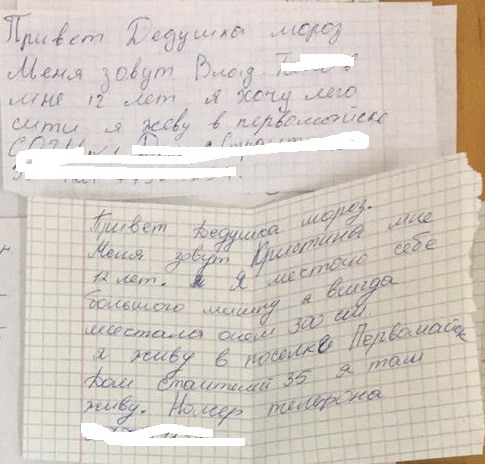 Привет Дедушка мороз
Меня зовут Влад
мне 12 лет я хочу лего
сити я жеву в первомайске
Привет Дедушка мороз.
Меня зовут Кристина мне
12 лет. Я местаю себе
большого мишку я всигда
месстала онем 300 см.
Я живу в поселке Первомайск
Дом 35 я там
живу. Номер телефона